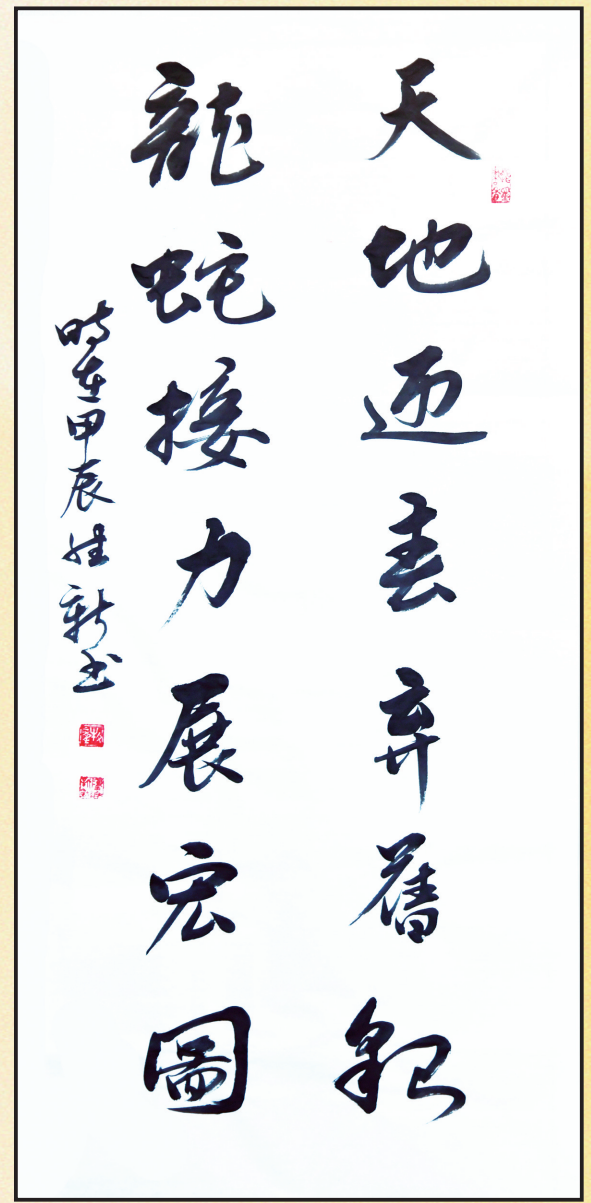 天地迎春弃舊貌
龍蛇接力展宏圖
時在甲辰新书